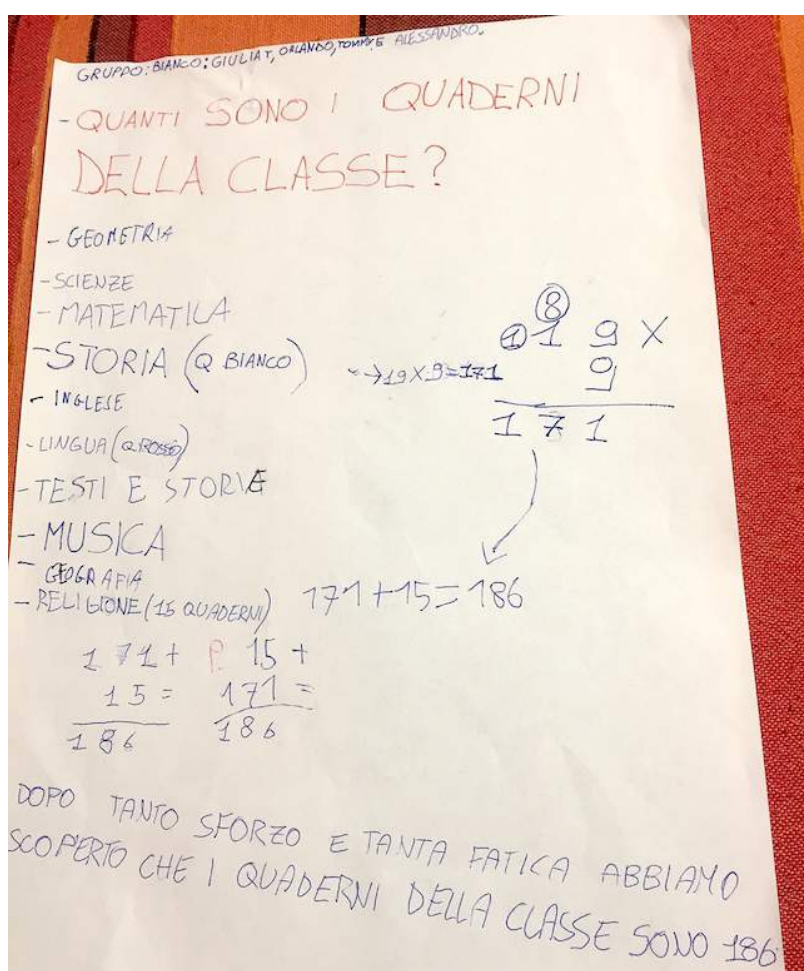 GRUPPO: BIANCO: GIULIA T, ORLANDO, TOMMY E ALESSANDRO.
- QUANTI SONO I QUADERNI
DELLA CLASSE?
- GEOMETRIA
- SCIENZE
- MATEMATICA
- STORIA (Q BIANCO)
- INGLESE
- LINGUA (Q ROSSO)
- TESTI E STORIE
- MUSICA
- GEOGRAFIA
- RELIGIONE (15 QUADERNI)
→ 19 X 9 = 171
8
1 1 9 X
9
1 7 1
171 + 15 = 186
171 +
15 =
186
P. 15 +
171 =
186
DOPO TANTO SFORZO E TANTA FATICA ABBIAMO
SCOPERTO CHE I QUADERNI DELLA CLASSE SONO 186